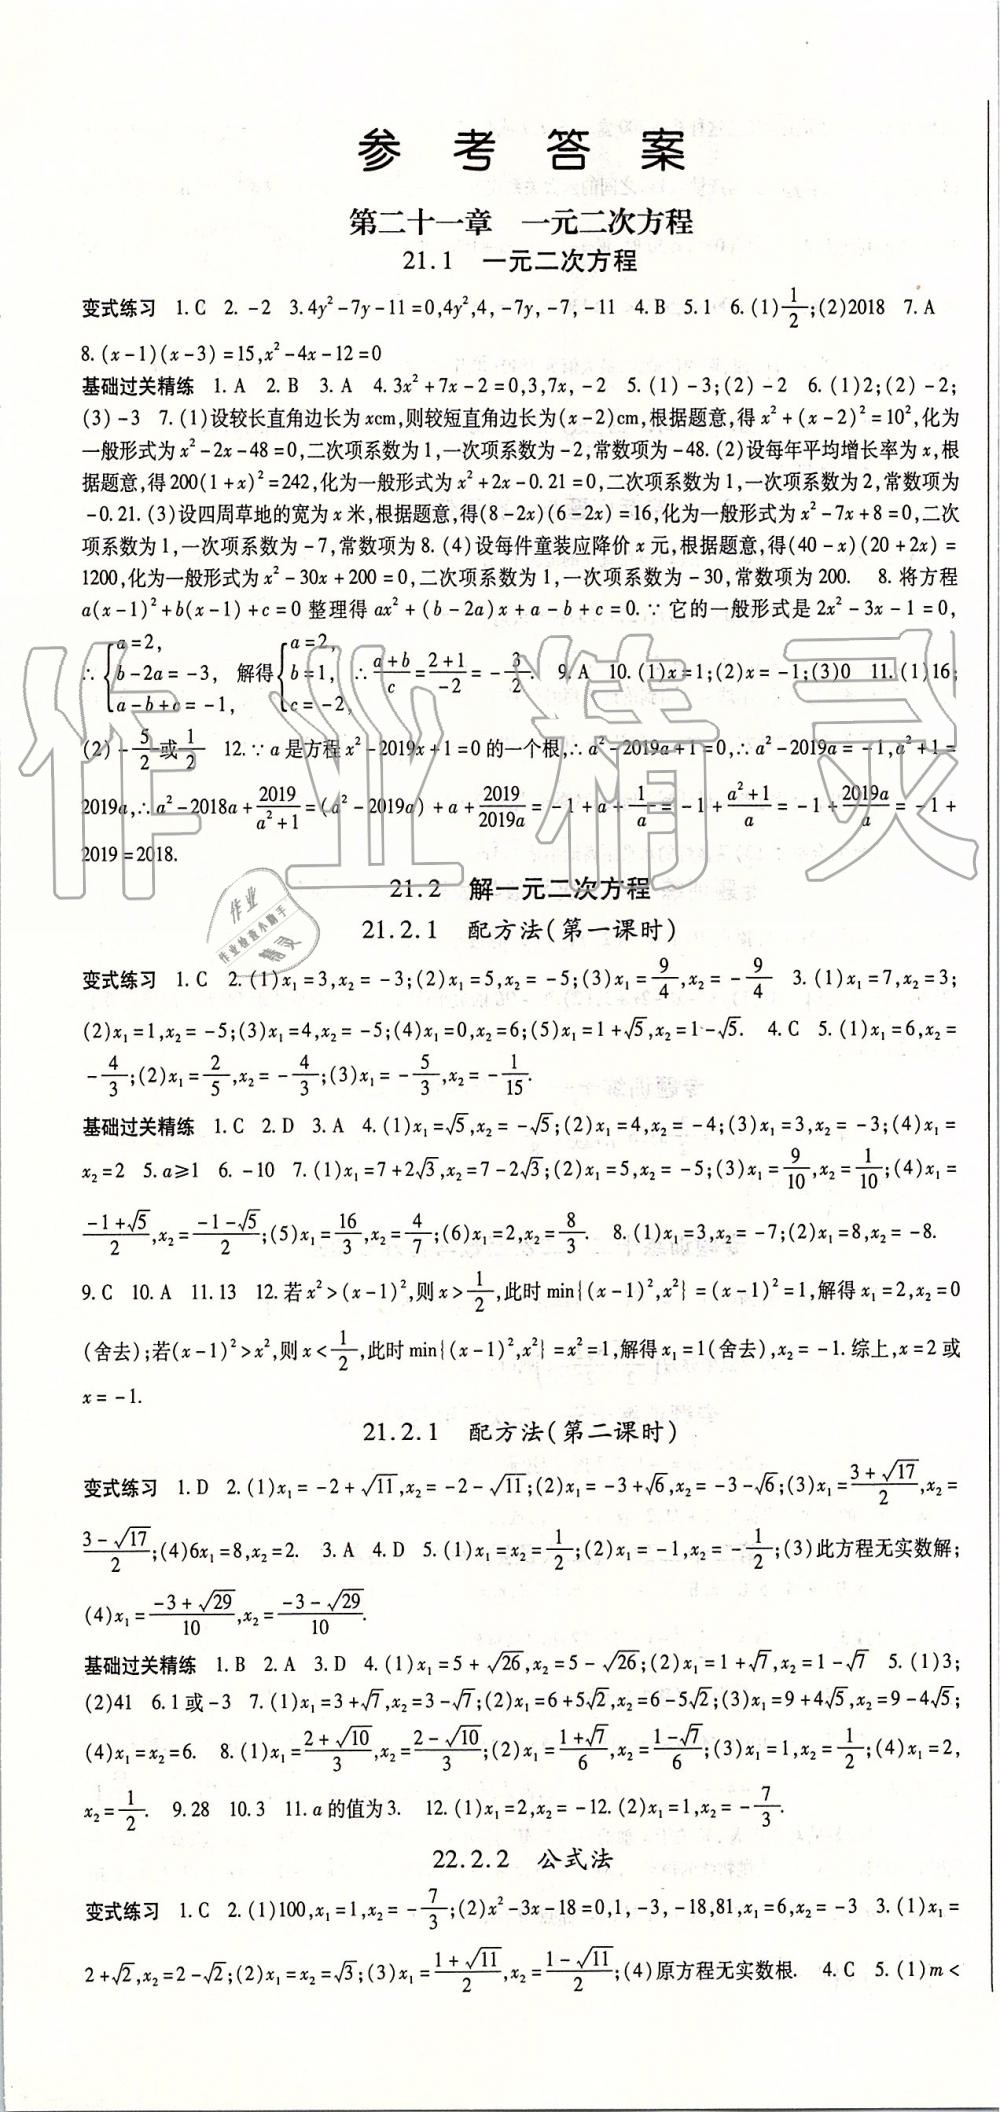 参考答案
第二十一章 一元二次方程
21.1 一元二次方程
变式练习 1.C 2.-2 3.4y²-7y-11=0,4y²,4,-7y,-7,-11 4.B 5.1 6.(1)1/2;(2)2018 7.A
8.(x-1)(x-3)=15,x²-4x-12=0
基础过关精练 1.A 2.B 3.A 4.3x²+7x-2=0,3,7x,-2 5.(1)-3;(2)-2 6.(1)2;(2)-2;
(3)-3 7.(1)设较长直角边长为xcm,则较短直角边长为(x-2)cm,根据题意,得x²+(x-2)²=10²,化为
一般形式为x²-2x-48=0,二次项系数为1,一次项系数为-2,常数项为-48.(2)设每年平均增长率为x,根
据题意,得200(1+x)²=242,化为一般形式为x²+2x-0.21=0,二次项系数为1,一次项系数为2,常数项为
-0.21.(3)设四周草地的宽为x米,根据题意,得(8-2x)(6-2x)=16,化为一般形式为x²-7x+8=0,二次
项系数为1,一次项系数为-7,常数项为8.(4)设每件童装应降价x元,根据题意,得(40-x)(20+2x)=
1200,化为一般形式为x²-30x+200=0,二次项系数为1,一次项系数为-30,常数项为200. 8.将方程
a(x-1)²+b(x-1)+c=0整理得ax²+(b-2a)x+a-b+c=0.∵它的一般形式是2x²-3x-1=0,
∴{a=2, b-2a=-3, a-b+c=-1, 解得{a=2, b=1, c=-2, ∴(a+b)/c=(2+1)/-2=-3/2. 9.A 10.(1)x=1;(2)x=-1;(3)0 11.(1)16;
(2)-5/2或1/2 12.∵a是方程x²-2019x+1=0的一个根,∴a²-2019a+1=0,∴a²-2019a=-1,a²+1=
2019a,∴a²-2018a+2019/(a²+1)=(a²-2019a)+a+2019/2019a=-1+a+1/a=-1+(a²+1)/a=-1+2019a/a=-1+
2019=2018.
21.2 解一元二次方程
21.2.1 配方法(第一课时)
变式练习 1.C 2.(1)x₁=3,x₂=-3;(2)x₁=5,x₂=-5;(3)x₁=9/4,x₂=-9/4 3.(1)x₁=7,x₂=3;
(2)x₁=1,x₂=-5;(3)x₁=4,x₂=-5;(4)x₁=0,x₂=6;(5)x₁=1+√5,x₂=1-√5. 4.C 5.(1)x₁=6,x₂=
-4/3;(2)x₁=2/5,x₂=-4/3;(3)x₁=-5/3,x₂=-1/15.
基础过关精练 1.C 2.D 3.A 4.(1)x₁=√5,x₂=-√5;(2)x₁=4,x₂=-4;(3)x₁=3,x₂=-3;(4)x₁=
x₂=2 5.a≥1 6.-10 7.(1)x₁=7+2√3,x₂=7-2√3;(2)x₁=5,x₂=-5;(3)x₁=9/10,x₂=1/10;(4)x₁=
(-1+√5)/2,x₂=(-1-√5)/2;(5)x₁=16/3,x₂=4/7;(6)x₁=2,x₂=8/3. 8.(1)x₁=3,x₂=-7;(2)x₁=8,x₂=-8.
9.C 10.A 11.13 12.若x²>(x-1)²,则x>1/2,此时min{(x-1)²,x²}=(x-1)²=1,解得x₁=2,x₂=0
(舍去);若(x-1)²>x²,则x<1/2,此时min{(x-1)²,x²}=x²=1,解得x₁=1(舍去),x₂=-1.综上,x=2或
x=-1.
21.2.1 配方法(第二课时)
变式练习 1.D 2.(1)x₁=-2+√11,x₂=-2-√11;(2)x₁=-3+√6,x₂=-3-√6;(3)x₁=(3+√17)/2,x₂=
(3-√17)/2;(4)6x₁=8,x₂=2. 3.A 4.D 5.(1)x₁=x₂=1/2;(2)x₁=-1,x₂=-1/2;(3)此方程无实数解;
(4)x₁=(-3+√29)/10,x₂=(-3-√29)/10.
基础过关精练 1.B 2.A 3.D 4.(1)x₁=5+√26,x₂=5-√26;(2)x₁=1+√7,x₂=1-√7 5.(1)3;
(2)41 6.1或-3 7.(1)x₁=3+√7,x₂=3-√7;(2)x₁=6+5√2,x₂=6-5√2;(3)x₁=9+4√5,x₂=9-4√5;
(4)x₁=x₂=6. 8.(1)x₁=(2+√10)/3,x₂=(2-√10)/3;(2)x₁=(1+√7)/6,x₂=(1-√7)/6;(3)x₁=1,x₂=1/2;(4)x₁=2,
x₂=1/2. 9.28 10.3 11.a的值为3. 12.(1)x₁=2,x₂=-12.(2)x₁=1,x₂=-7/3.
22.2.2 公式法
变式练习 1.C 2.(1)100,x₁=1,x₂=-7/3;(2)x²-3x-18=0,1,-3,-18,81,x₁=6,x₂=-3 3.(1)x₁=
2+√2,x₂=2-√2;(2)x₁=x₂=√3;(3)x₁=(1+√11)/2,x₂=(1-√11)/2;(4)原方程无实数根. 4.C 5.(1)m<
作业精灵
作业
作业检查小助手
精灵